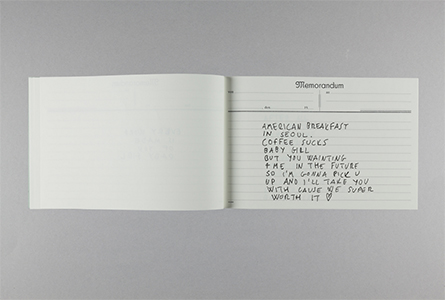 Memorandum
AMERICAN BREAKFAST
IN SEOUL.
COFFEE SUCKS
BABY GIRL
BUT YOU WAINTING
4 ME IN THE FUTURE
SO I'M GONNA PICK U
UP AND I'LL TAKE YOU
WITH CAUSE WE SUPER
WORTH IT ♡